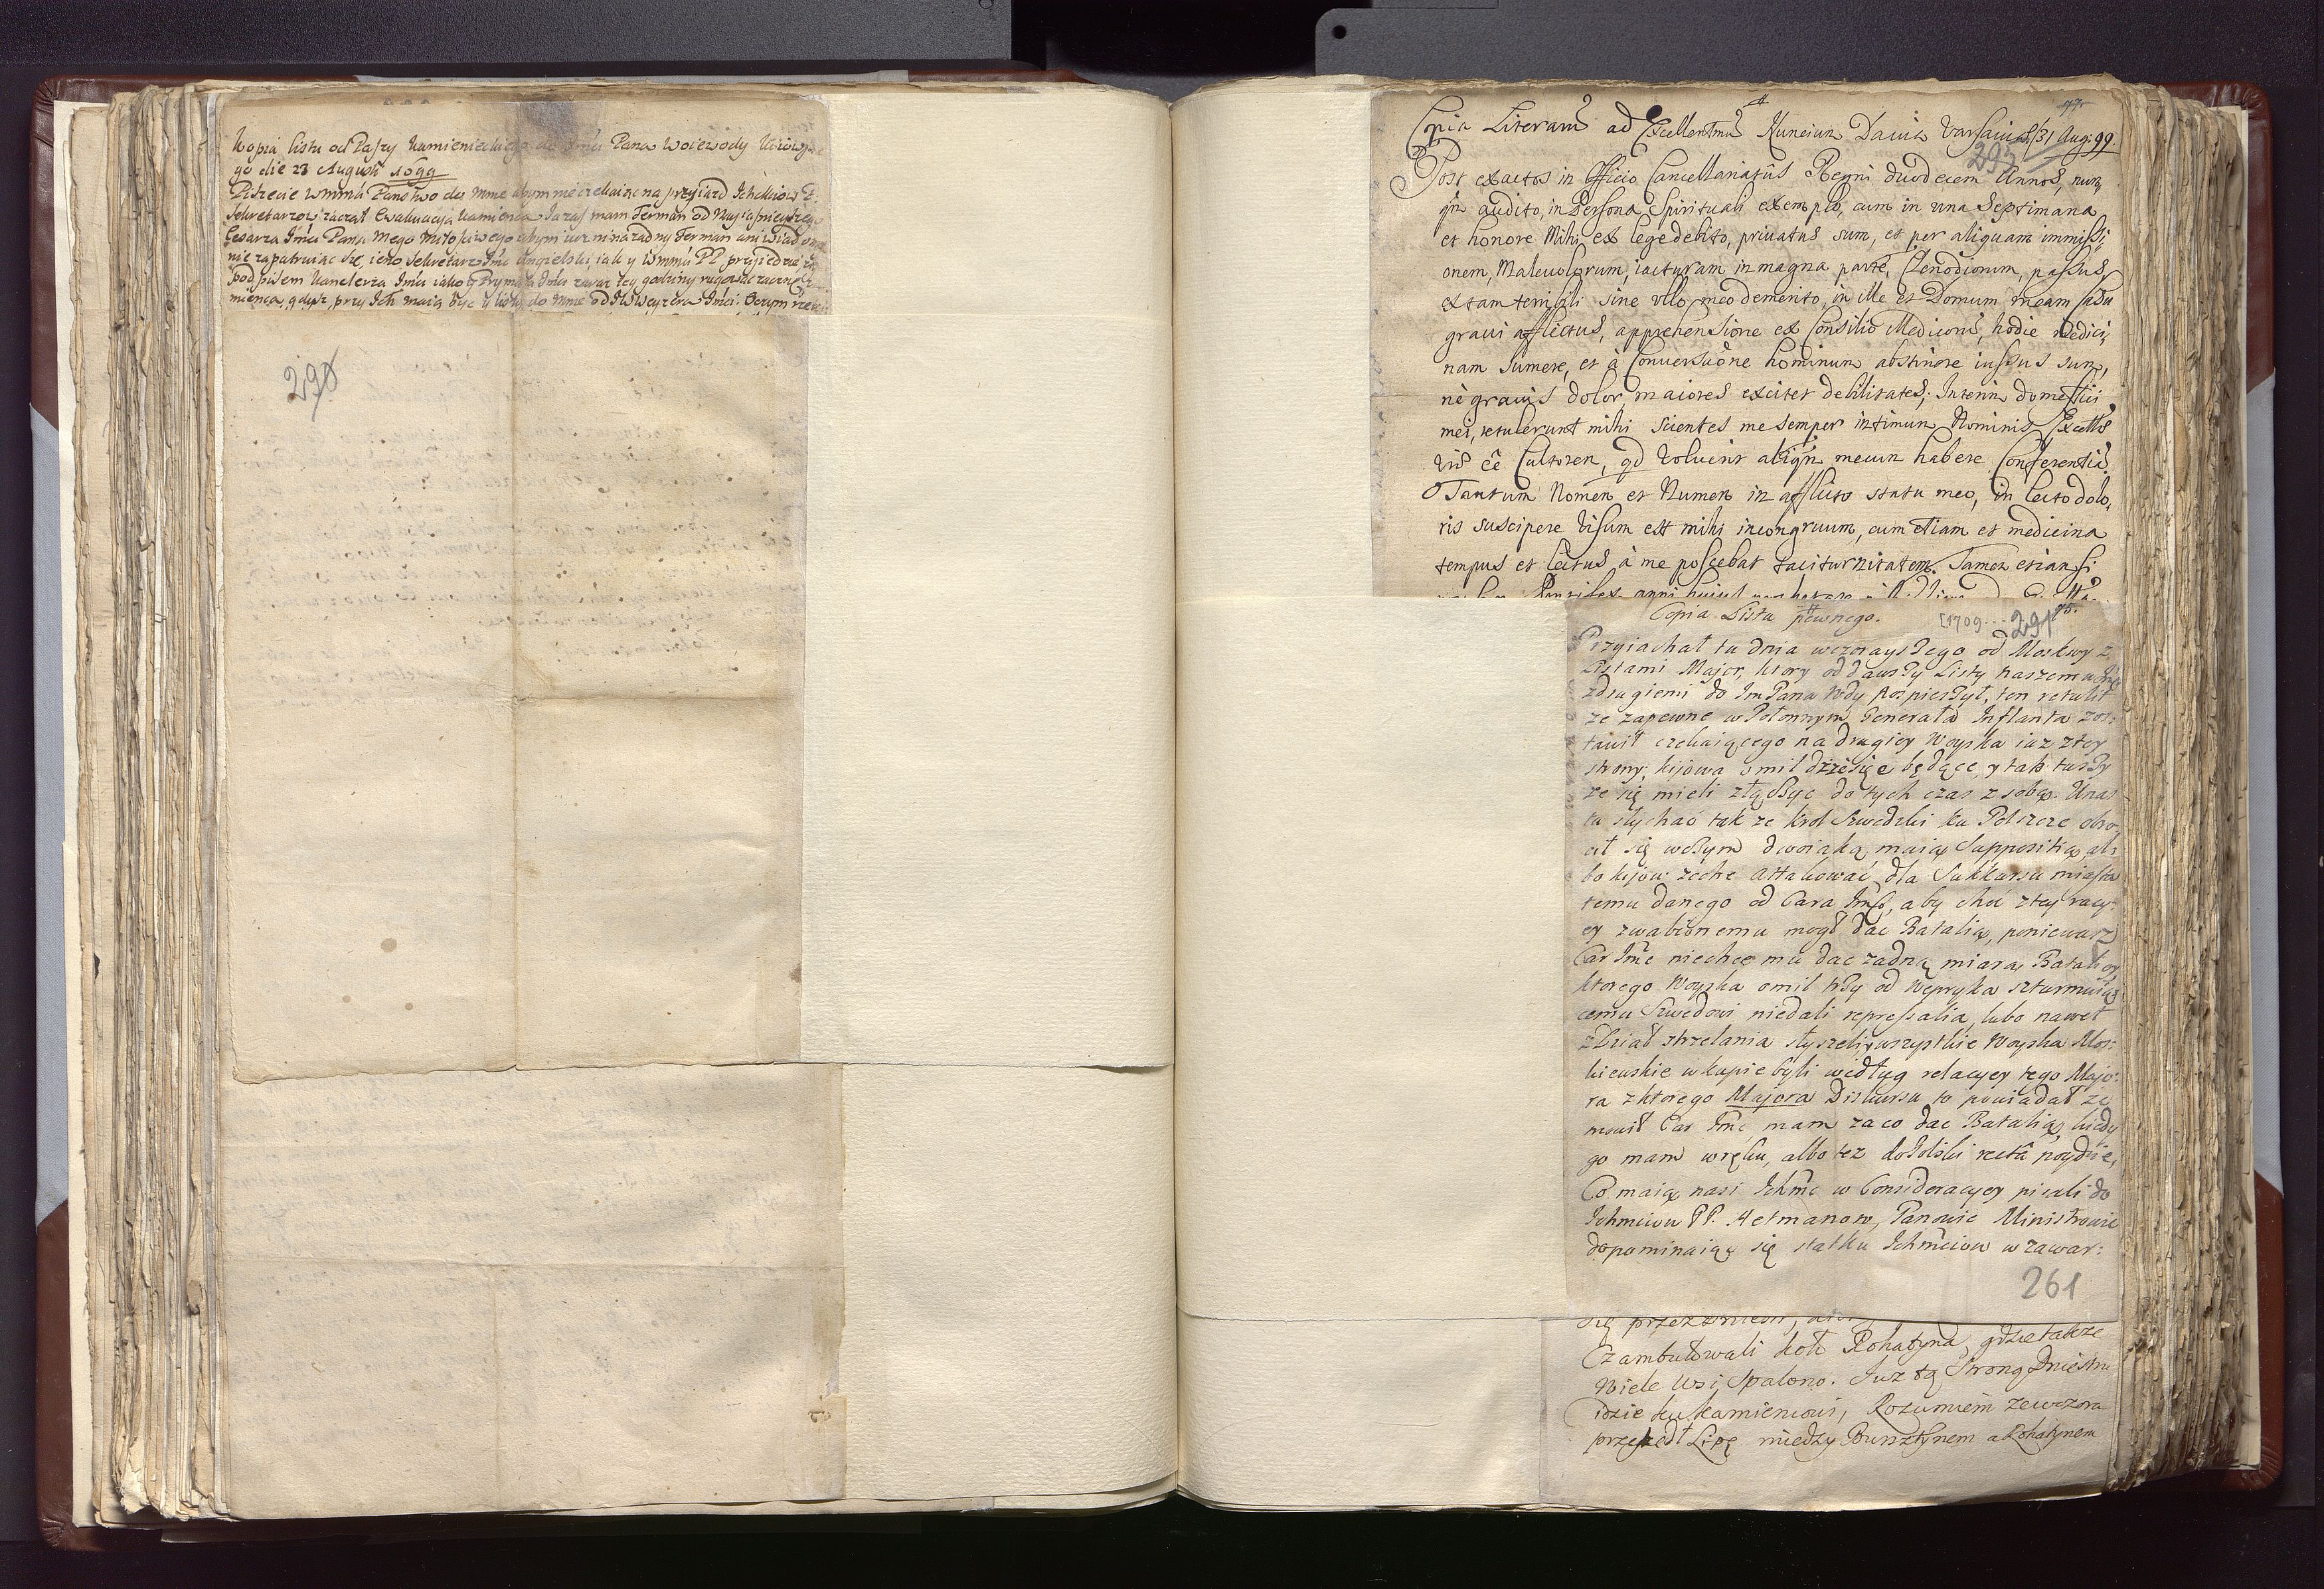 Kopia listu od Baszy Kamienieckiego do Imci Pana Woiewody Kiiowskie
go die 23 Augusti 1699
Piszecie Wmmci Panstwo do mnie abym nie czekaiąc na przyiazd Ichmciow P.
Sekretarzow zaczął Ewakuacyą Kamienca Ia zas mam Ferman od Nayiasnieyszego
Cesarza Imci Pana mego Miłosciwego abym iuz ni na zadny Ferman ani
nie zapatruiąc się, ieno Sekretarz Imci Angielski, iak y Wmmci PP przyiedzie
pod pisem Kanclerza Imci iako y Prymasa Imci zaraz tey godziny
mienca, gdysz przy Ich maią bydz y listy do mnie od IW Wezyra Imci. Oczym
290
Copia Literarum ad Excellentmum Nuncium Davia Varsaviae 31 Aug: 99.
293
Post exactos in Officio Cancellariatus Regni duodecem Annos, nun,
qm audito, in Persona Spirituali exemplo, cum in una Septimana
et honore Mihi ex lege debito, privatus sum, et per aliquam immissi,
onem, Malevolorum, iacturam in magna parte, Clenodiorum, passus,
ex tam terribili sine ullo meo demerito, in me et Domum meam casu
gravi afflictus, apprehensione ex Consilio Medicorum, hodie medici,
nam sumere, et à Conversatione hominum abstinere iussus sum,
nè gravis dolor maiores excitet debilitates; Interim domestici
mei, retulerunt mihi scientes me semper intimum Nominis Excellae
Vrae eê Cultorem, qd voluerit aliqm mecum habere Conferentiã.
Tantum Nomen et Numen in afflicto statu meo, in lecto dolo,
ris suscipere visum est mihi incongruum, cum etiam et medicina
tempus et lectus à me poscebat taciturnitatem. Tamen etiam si
Copia Listu pewnego. [1709... 291 75.
Przyiachał tu dnia wczorayszego od Moskwy z
Listami Major, ktory oddawszy Listy naszemu
zdrugiemi do Im Pana Wdy pospieszył, ten retulit
ze zapewne w Połonnym Generała Inflanta zos:
tawił czekaiącego na drugiey Woyska iuz ztey
strony Kijowa o mil dziesięc będące, y tak tuszy
ze się mieli złączyc do tych czas z sobą. Unas
tu słychac tak ze Krol Szwedzki ku Polszcze obro,
cił się wczym dwoiaką maią Suppositią, al:
bo Kijow zeche attakowac dla Sukkursu miastu
temu danego od Cara Imsci, aby choc ztey racy:
ey zwabionemu mogł dac Batalią, poniewasz
Car Imc niechce mu dac zadną miarą Bataliey
ktorego Woyska o mil trzy od Wepryka szturmuią:
cemu Szwedowi niedali repressalia, lubo nawet
zDział strzelania słyszeli, y wszystkie Woyska Mos:
kiewskie w kupie byli według relacyey tego Majo:
ra z ktorego Majora Diskursu to powiadał ze
mowił Car Imc mam zaco dac Batalią, kiedy
go mam w ręku, albo tez do Polski recta poydzie,
Co maią nasi Ichmc w Consideracyey pisali do
Ichmciow PP. Hetmanow, Panowie Ministrowie
dopominaiąc się statku Ichmciow w zawar:
261
Czambułowali koło Rohatyna, gdzie takze
Wiele Wsi spalono. Iuz tą stroną Dniestru
idzie ku Kamiencowi, Rozumiem ze wczora
przeszedł Lipę między Bursztynem a Rohatynem